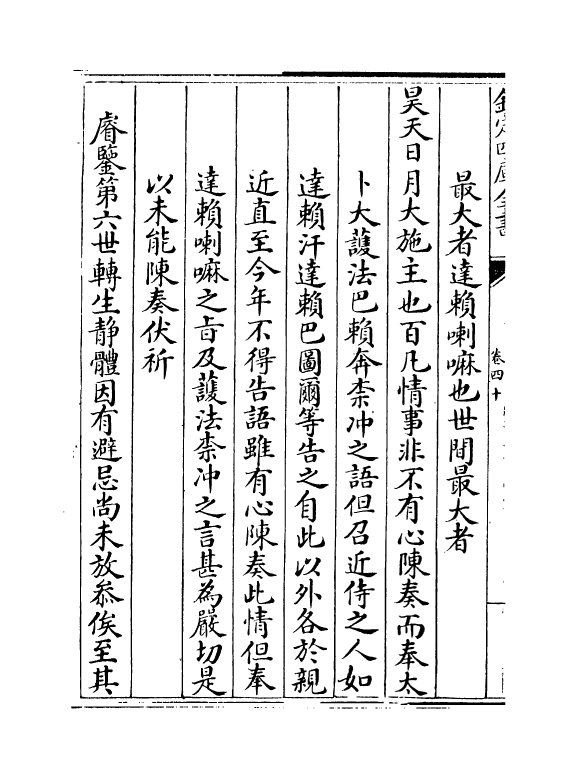 欽定四庫全書
卷四十
最大者達賴喇嘛也世間最大者
昊天日月大施主也百凡情事非不有心陳奏而奉太
卜大護法巴賴奔柰冲之語但召近侍之人如
達賴汗達賴巴圖爾等告之自此以外各於親
近直至今年不得告語雖有心陳奏此情但奉
達賴喇嘛之㫖及護法柰冲之言甚為嚴切是
以未能陳奏伏祈
睿鑒第六世轉生静體因有避忌尚未放叅俟至其